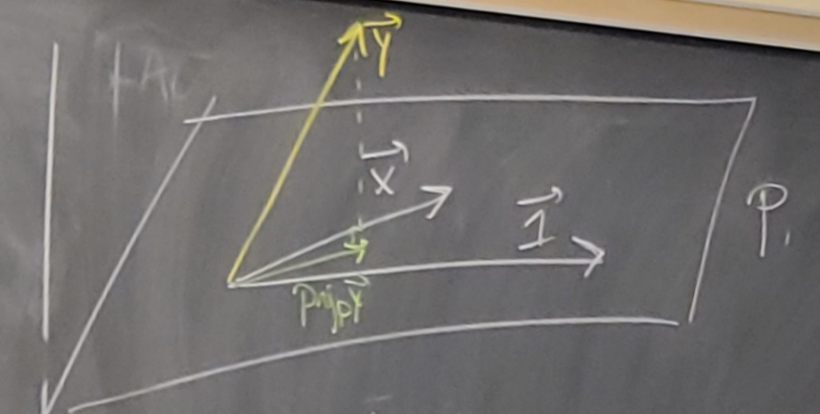 y⃗
x⃗
1⃗
P₁
proj_P y⃗